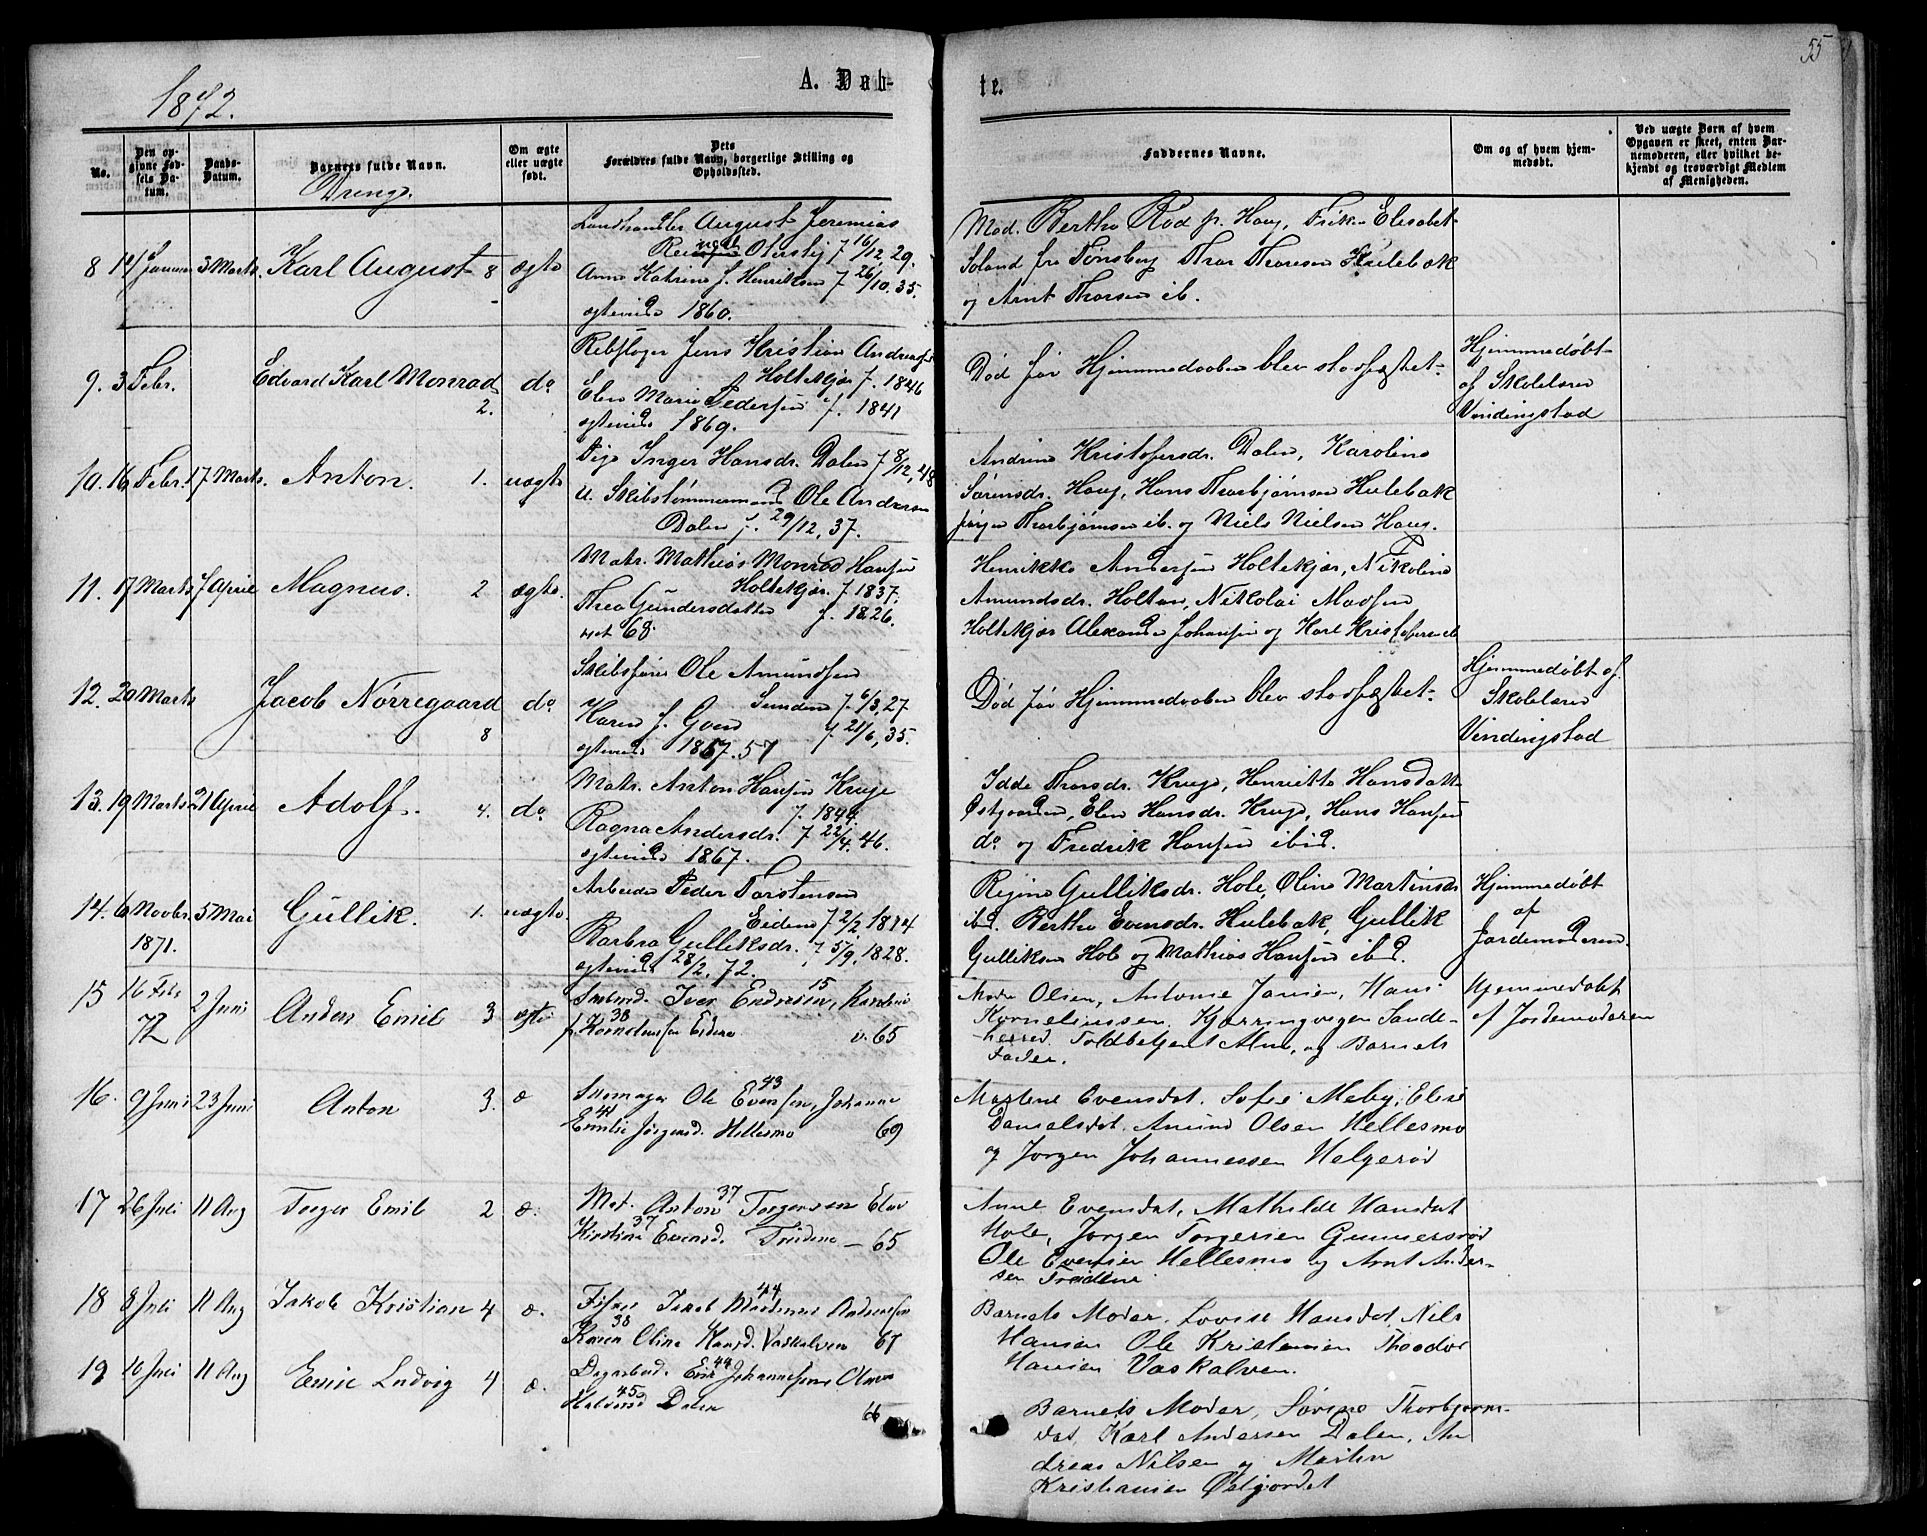 55
1872.
A. Døb-
te.
No.
Den op-
givne Fød-
sels Da-
tum.
Daabs-
Datum.
Barnets fulde Navn.
Drenge.
Om ægte
eller uægte
født.
Dets
Forældres fulde Navn, borgerlige Stilling og
Opholdssted.
Faddernes Navne.
Om og af hvem hjem-
medøbt.
Ved uægte Børn af hvem
Opgaven er skeet, enten Bar-
nemoderen, eller hvilket be-
kjendt og troværdigt Medlem
af Menigheden.
8
Januar
3 Marts.
Karl August
8
ægte
Landhandler August Jeremias
Olersby f 16/12, 29.
Anne Katrine f. Henriksen f 26/10. 35.
ægteviede 1860.
Mad. Berthe Rød p. Haug, Frøken Elisabet
Soland fra Tønsberg Thor Thoresen Hulebak
og Arnt Thorsen ib.
9. 3 Febr.
Edvard Karl Monrad
2.
do
Rebslager Jens Kristian Andreassen
Holtekjær f. 1846
Elen Marie Pedersen f. 1841
ægteviede 1869.
Død før Hjemmedaaben blev stadfæstet.
Hjemmedøbt
af Skolelærer
Vindingstad
10. 16 Febr. 17 Marts.
Anton.
1.
uægte
Pige Inger Hansdr. Dalen f 8/12, 48
u. Skibstømmermand Ole Andersen
Dalen f. 29/12, 37.
Andrine Kristofersdr. Dalen, Karoline
Sørensdr. Haug, Hans Thorbjørnsen Hulebak
Jørgen Thorbjørnsen ib. og Niels Nielsen Haug.
11. 17 Marts 7 April
Magnus.
2
ægte.
Matr. Mathias Monrad Hansen
Holtekjær. f 1837.
Thea Gundersdatter f. 1826.
viet 68.
Henrikke Andersen Holtekjær, Nikoline
Amundsdr. Holtan, Nikolai Madsen
Holtekjær Alexander Johansen og Karl Kristofersen ib
12. 20 Marts
Jacob Nørregaard
8
do
Skibsfører Ole Amundsen
Sunden f 6/3, 27
Karen f. Goen f 21/6, 35.
ægteviede 1857. 57
Død før Hjemmedaaben blev stadfæstet.
Hjemmedøbt af
Skolelærer
Vindingstad
13. 19 Marts 21 April
Adolf.
4.
do
Matr. Anton Hansen Kruge
f. 1844.
Ragna Andersdr. f 22/4. 46.
ægteviede 1867.
Idde Thorsdr. Kruge, Henriette Hansdatt
Østgaarden, Elen Hansdr. Kruge, Hans Hansen
do og Fredrik Hansen ibid.
14. 6 Novbr. 5 Mai
1871.
Gullik.
1.
uægte.
Arbeider Peder Torstensen
Eidene f 2/2, 1814
Barbra Gulliksdr. f 5/9, 1828.
ægteviede 28/2, 72.
Regine Gulliksdr. Hole, Oline Martinsdr
ibd. Berthe Evensdr. Hulebak, Gullik
Gulliksen Hole og Mathias Hansen ibd.
Hjemmedøbt
af
Jordemoderen.
15
16 Febr
72
2 Juni
Anders Emil
3
ægte
Iver Endresen, 15 Karoline
f. Korneliussen 38 Eidene v. 65
Olsen, Antonie Jansen, Hans
Korneliussen Kjerringvigen Sande-
herred. Toldbetjent Alm, og Barnets
Fader.
Hjemmedøbt
af Jordemoderen
16. 9 Juni 23 Juni
Anton
3.
æ
Skomager Ole Evensen, 43 Johanne
Emilie 41 Jørgensd. Hellesmo 69
Martene Evensdat. Sofie Meby, Elise
Danielsdat. Amund Olsen Hellesmo
og Jørgen Johannessen Helgerød
17 26 Juli 11 Aug
Torger Emil
2
æ.
Mat. Anton 37 Torgersen
Kirstine 37 Evensd. Tridene – 65
Anne Evensdat, Mathilde Hansdat
Hole, Jørgen Torgersen Gunnersrød
Ole Evensen Hellesmo og Arnt Ander-
sen Tridene
18 8 Juli 11 Aug
Jakob Kristian
4
æ.
Fisker Jakob 44 Andreassen
Karen 38 Oline Hansd. Vaskalven 67
Barnets Moder, Lovise Hansdat, Nils
Hansen Ole Kristensen Theodor
Hansen Vaskalven.
19 10 Juli 11 Aug
Emil Ludvig
4
æ.
Dagarbeid. 44 Johannessen
Halvorsd 45 Dalen
66
Barnets Moder, Sørine Thorbjørns-
dat, Karl Andersen Dalen, An
dreas Nilsen og Martin
Kristiansen Østgjordet